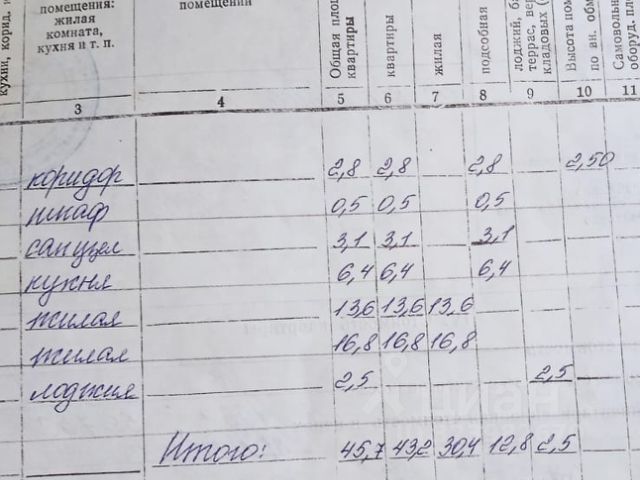 кухни, корид,
помещения:
жилая
комната,
кухня и т. п.
помещений
Общая
квартиры
квартиры
жилая
подсобная
лоджий,
террас,
кладовых
Высота
по вн. обм
Самовольн
оборуд.
3 4 5 6 7 8 9 10 11
коридор 2,8 2,8 2,8 2,50
шкаф 0,5 0,5 0,5
санузел 3,1 3,1 3,1
кухня 6,4 6,4 6,4
жилая 13,6 13,6 13,6
жилая 16,8 16,8 16,8
лоджия 2,5 2,5
Итого: 45,7 43,2 30,4 12,8 2,5